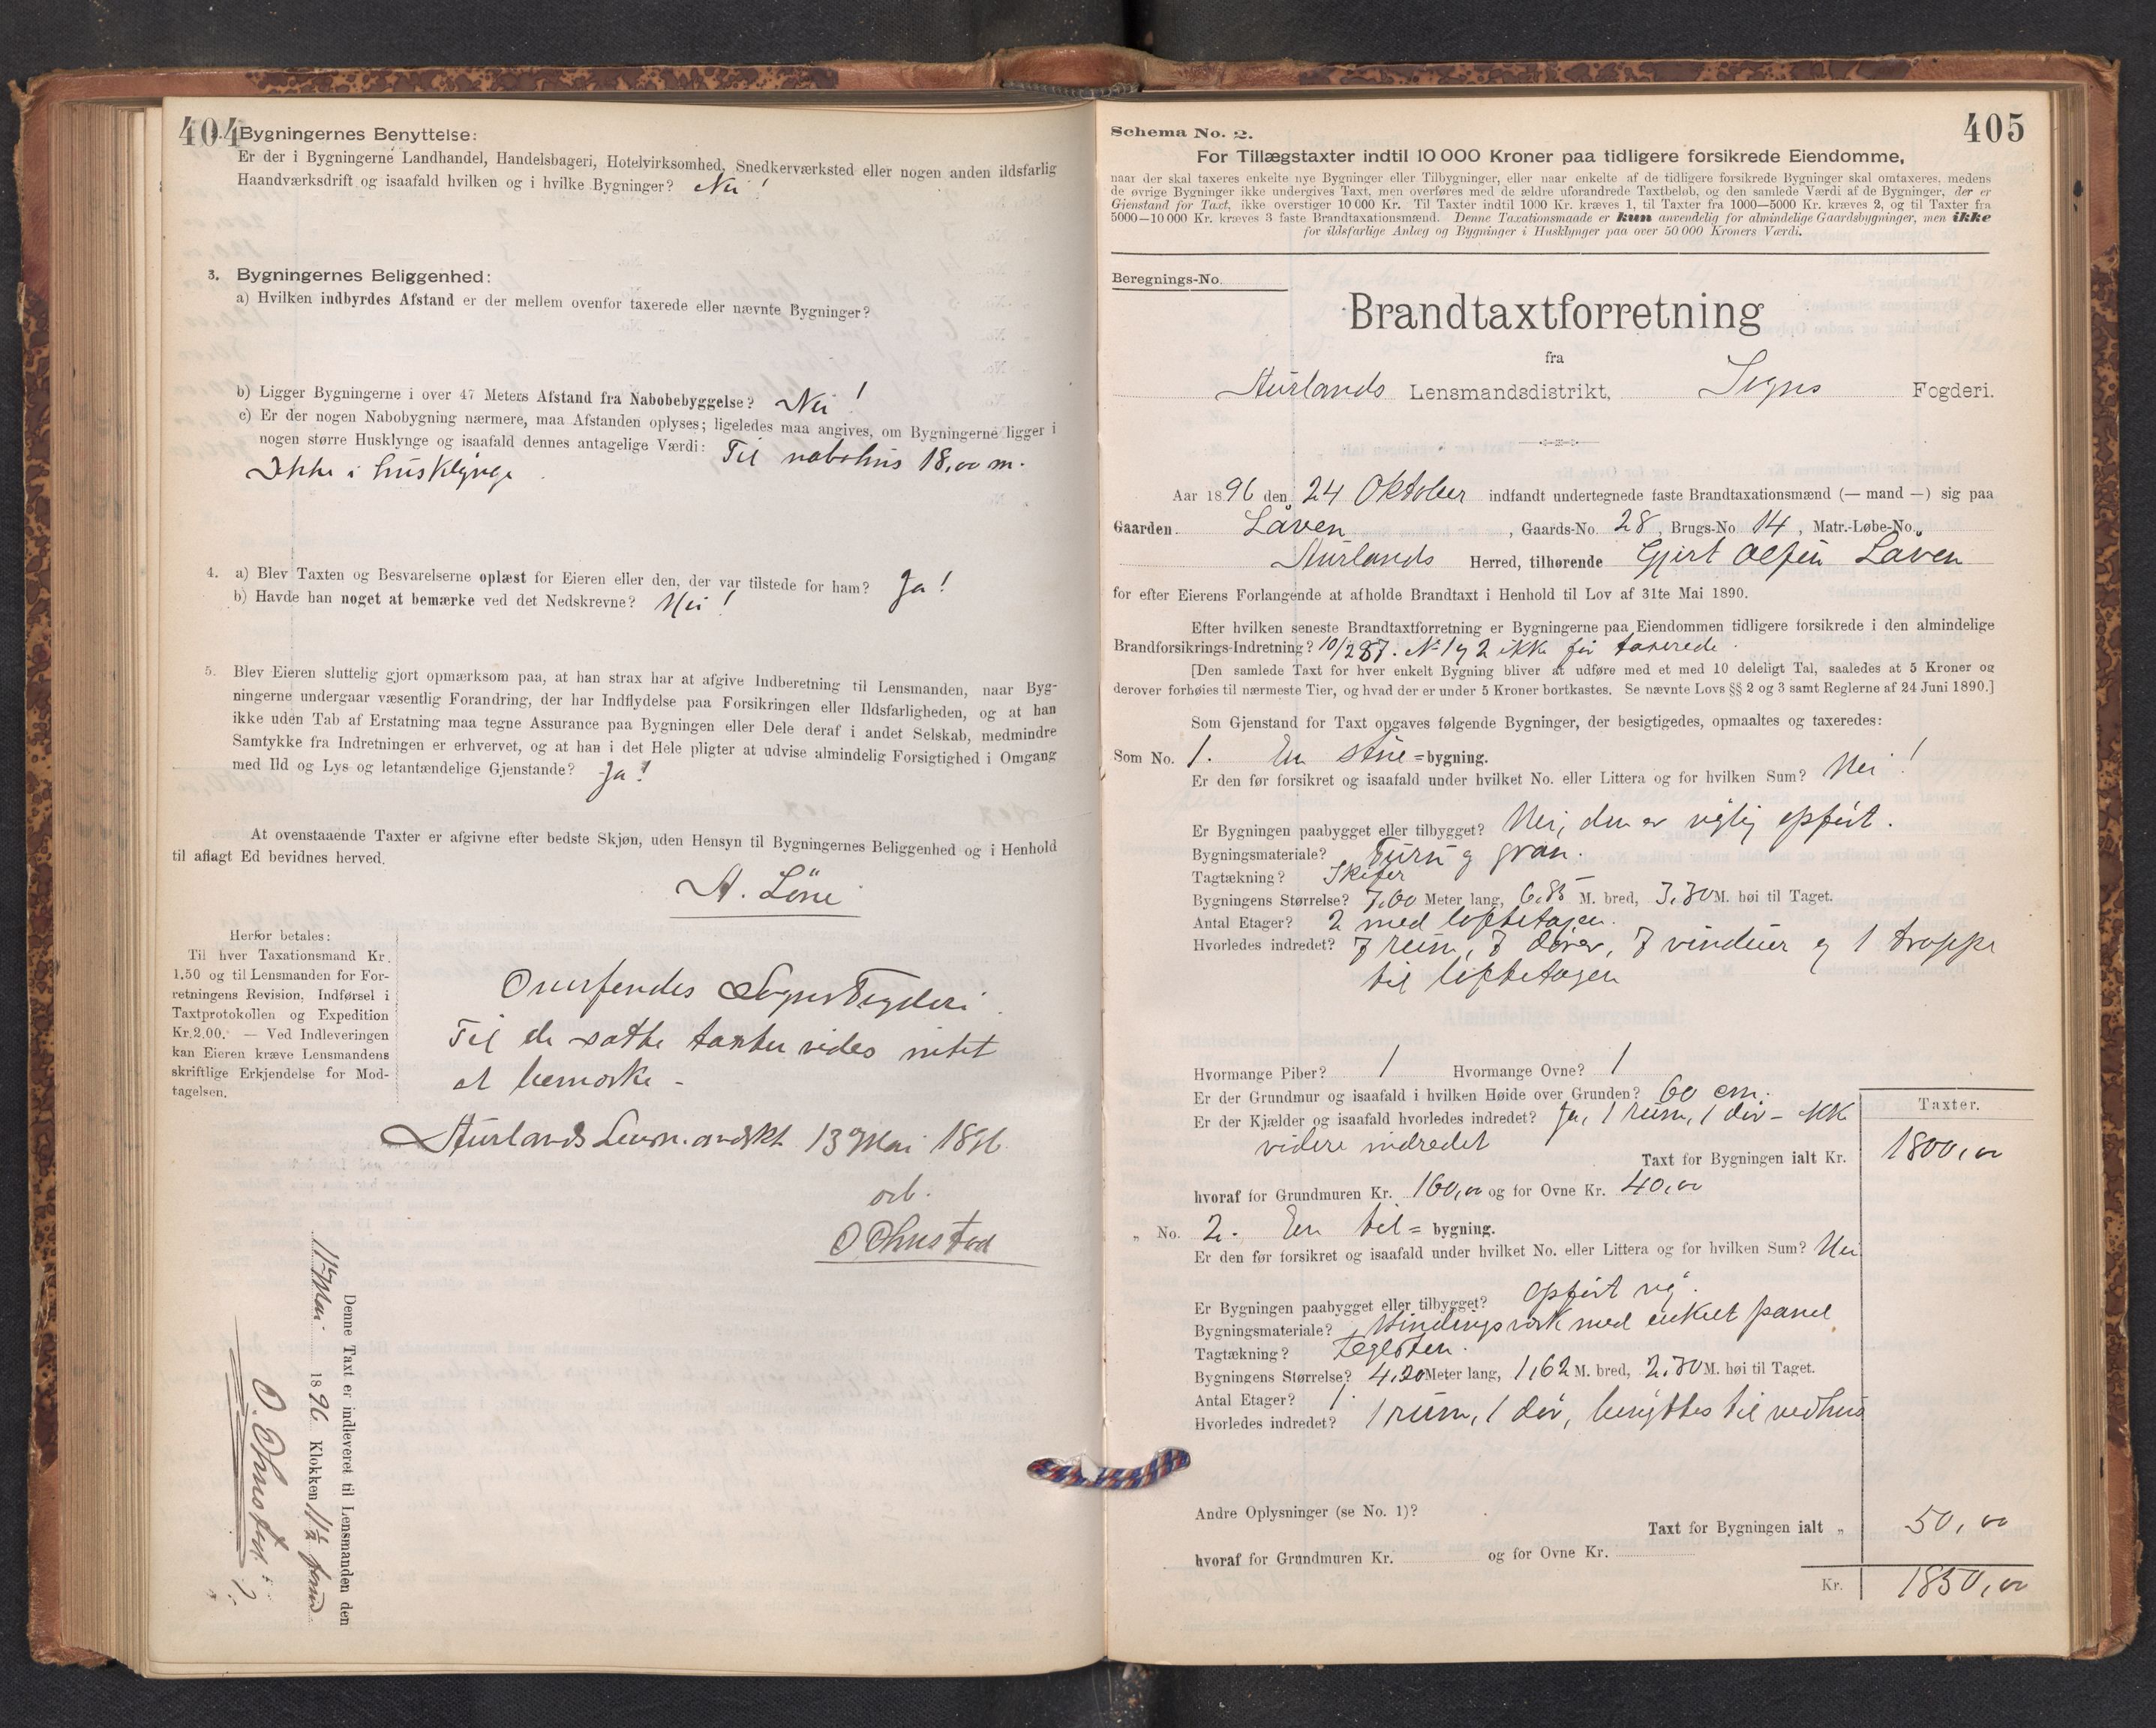 404
Bygningernes Benyttelse:
Er der i Bygningerne Landhandel, Handelsbageri, Hotelvirksomhed, Snedkerværksted eller nogen anden ildsfarlig
Haandværksdrift og isaafald hvilken og i hvilke Bygninger? Nei!
3. Bygningernes Beliggenhed:
a) Hvilken indbyrdes Afstand er der mellem ovenfor taxerede eller nævnte Bygninger?
b) Ligger Bygningerne i over 47 Meters Afstand fra Nabobebyggelse? Nei!
c) Er der nogen Nabobygning nærmere, maa Afstanden oplyses; ligeledes maa angives, om Bygningerne ligger i
nogen større Husklynge og isaafald dennes antagelige Værdi: Til nabohus 18,00 m.
Ikke i husklynge
4. a) Blev Taxten og Besvarelserne oplæst for Eieren eller den, der var tilstede for ham? Ja!
b) Havde han noget at bemærke ved det Nedskrevne? Nei!
5. Blev Eieren sluttelig gjort opmærksom paa, at han strax har at afgive Indberetning til Lensmanden, naar Byg-
ningerne undergaar væsentlig Forandring, der har Indflydelse paa Forsikringen eller Ildsfarligheden, og at han
ikke uden Tab af Erstatning maa tegne Assurance paa Bygningen eller Dele deraf i andet Selskab, medmindre
Samtykke fra Indretningen er erhvervet, og at han i det Hele pligter at udvise almindelig Forsigtighed i Omgang
med Ild og Lys og letantændelige Gjenstande? Ja!
At ovenstaaende Taxter er afgivne efter bedste Skjøn, uden Hensyn til Bygningernes Beliggenhed og i Henhold
til aflagt Ed bevidnes herved.
A. Löne
Herfor betales:
Til hver Taxationsmand Kr.
1.50 og til Lensmanden for For-
retningens Revision, Indførsel i
Taxtprotokollen og Expedition
Kr. 2.00. — Ved Indleveringen
kan Eieren kræve Lensmandens
skriftlige Erkjendelse for Mod-
tagelsen.
Oversendes Sogns Fogderi.
Til de satte taxter vides intet
at bemærke -
Aurlands Lensmandskt 13 Mai 1896
O Ohnstad
Denne Taxt er indleveret til Lensmanden den
11te Mai 1896 Klokken 11½ form
O. Ohnstad
405
Schema No. 2.
For Tillægstaxter indtil 10 000 Kroner paa tidligere forsikrede Eiendomme,
naar der skal taxeres enkelte nye Bygninger eller Tilbygninger, eller naar enkelte af de tidligere forsikrede Bygninger skal omtaxeres, medens
de øvrige Bygninger ikke undergives Taxt, men overføres med de ældre uforandrede Taxtbeløb, og den samlede Værdi af de Bygninger, der er
Gjenstand for Taxt, ikke overstiger 10 000 Kr. Til Taxter indtil 1000 Kr. kræves 1, til Taxter fra 1000—5000 Kr. kræves 2, og til Taxter fra
5000—10 000 Kr. kræves 3 faste Brandtaxationsmænd. Denne Taxationsmaade er kun anvendelig for almindelige Gaardsbygninger, men ikke
for ildsfarlige Anlæg og Bygninger i Husklynger paa over 50 000 Kroners Værdi.
Beregnings-No.
Brandtaxtforretning
fra
Aurlands Lensmandsdistrikt, Sogns Fogderi.
Aar 1896 den 24 Oktober indfandt undertegnede faste Brandtaxationsmænd (— mand —) sig paa
Gaarden Låven, Gaards-No. 28, Brugs-No. 14, Matr.-Løbe-No.
Aurlands Herred, tilhørende Gjert Olsen Låven
for efter Eierens Forlangende at afholde Brandtaxt i Henhold til Lov af 31te Mai 1890.
Efter hvilken seneste Brandtaxtforretning er Bygningerne paa Eiendommen tidligere forsikrede i den almindelige
Brandforsikrings-Indretning? 10/2 87. No 1 og 2 ikke før taxerede.
[Den samlede Taxt for hver enkelt Bygning bliver at udføre med et med 10 deleligt Tal, saaledes at 5 Kroner og
derover forhøies til nærmeste Tier, og hvad der er under 5 Kroner bortkastes. Se nævnte Lovs §§ 2 og 3 samt Reglerne af 24 Juni 1890.]
Som Gjenstand for Taxt opgaves følgende Bygninger, der besigtigedes, opmaaltes og taxeredes:
Som No. 1. En stue=bygning.
Er den før forsikret og isaafald under hvilket No. eller Littera og for hvilken Sum? Nei!
Er Bygningen paabygget eller tilbygget? Nei, den er nylig opført.
Bygningsmateriale? Furu og gran.
Tagtækning? Skifer
Bygningens Størrelse? 7,60 Meter lang, 6,85 M. bred, 3,30 M. høi til Taget.
Antal Etager? 2 med loftetagen.
Hvorledes indredet? 7 rum, 7 dører, 7 vinduer og 1 trappe
til loftetagen
Hvormange Piber? 1 Hvormange Ovne? 1
Er der Grundmur og isaafald i hvilken Høide over Grunden? 60 cm.
Er der Kjælder og isaafald hvorledes indredet? Ja, 1 rum, 1 dør - ikke
videre indredet
Taxter.
Taxt for Bygningen ialt Kr. 1800,00
hvoraf for Grundmuren Kr. 160,00 og for Ovne Kr. 40,00
„ No. 2. En til=bygning.
Er den før forsikret og isaafald under hvilket No. eller Littera og for hvilken Sum? Nei
Er Bygningen paabygget eller tilbygget? Opført ny.
Bygningsmateriale? Bindingsværk med enkelt panel
Tagtækning? Teglsten.
Bygningens Størrelse? 4,20 Meter lang, 1,62 M. bred, 2,30 M. høi til Taget.
Antal Etager? 1.
Hvorledes indredet? 1 rum, 1 dør, benyttes til vedhus
Andre Oplysninger (se No. 1)?
Taxt for Bygningen ialt „ 50,00
hvoraf for Grundmuren Kr. og for Ovne Kr.
Kr. 1850,00